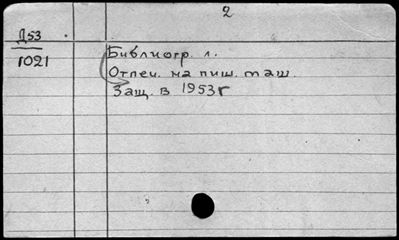 2
Д53
1021
Библиогр. л.
Отпеч. на пиш. маш.
Защ. в 1953г